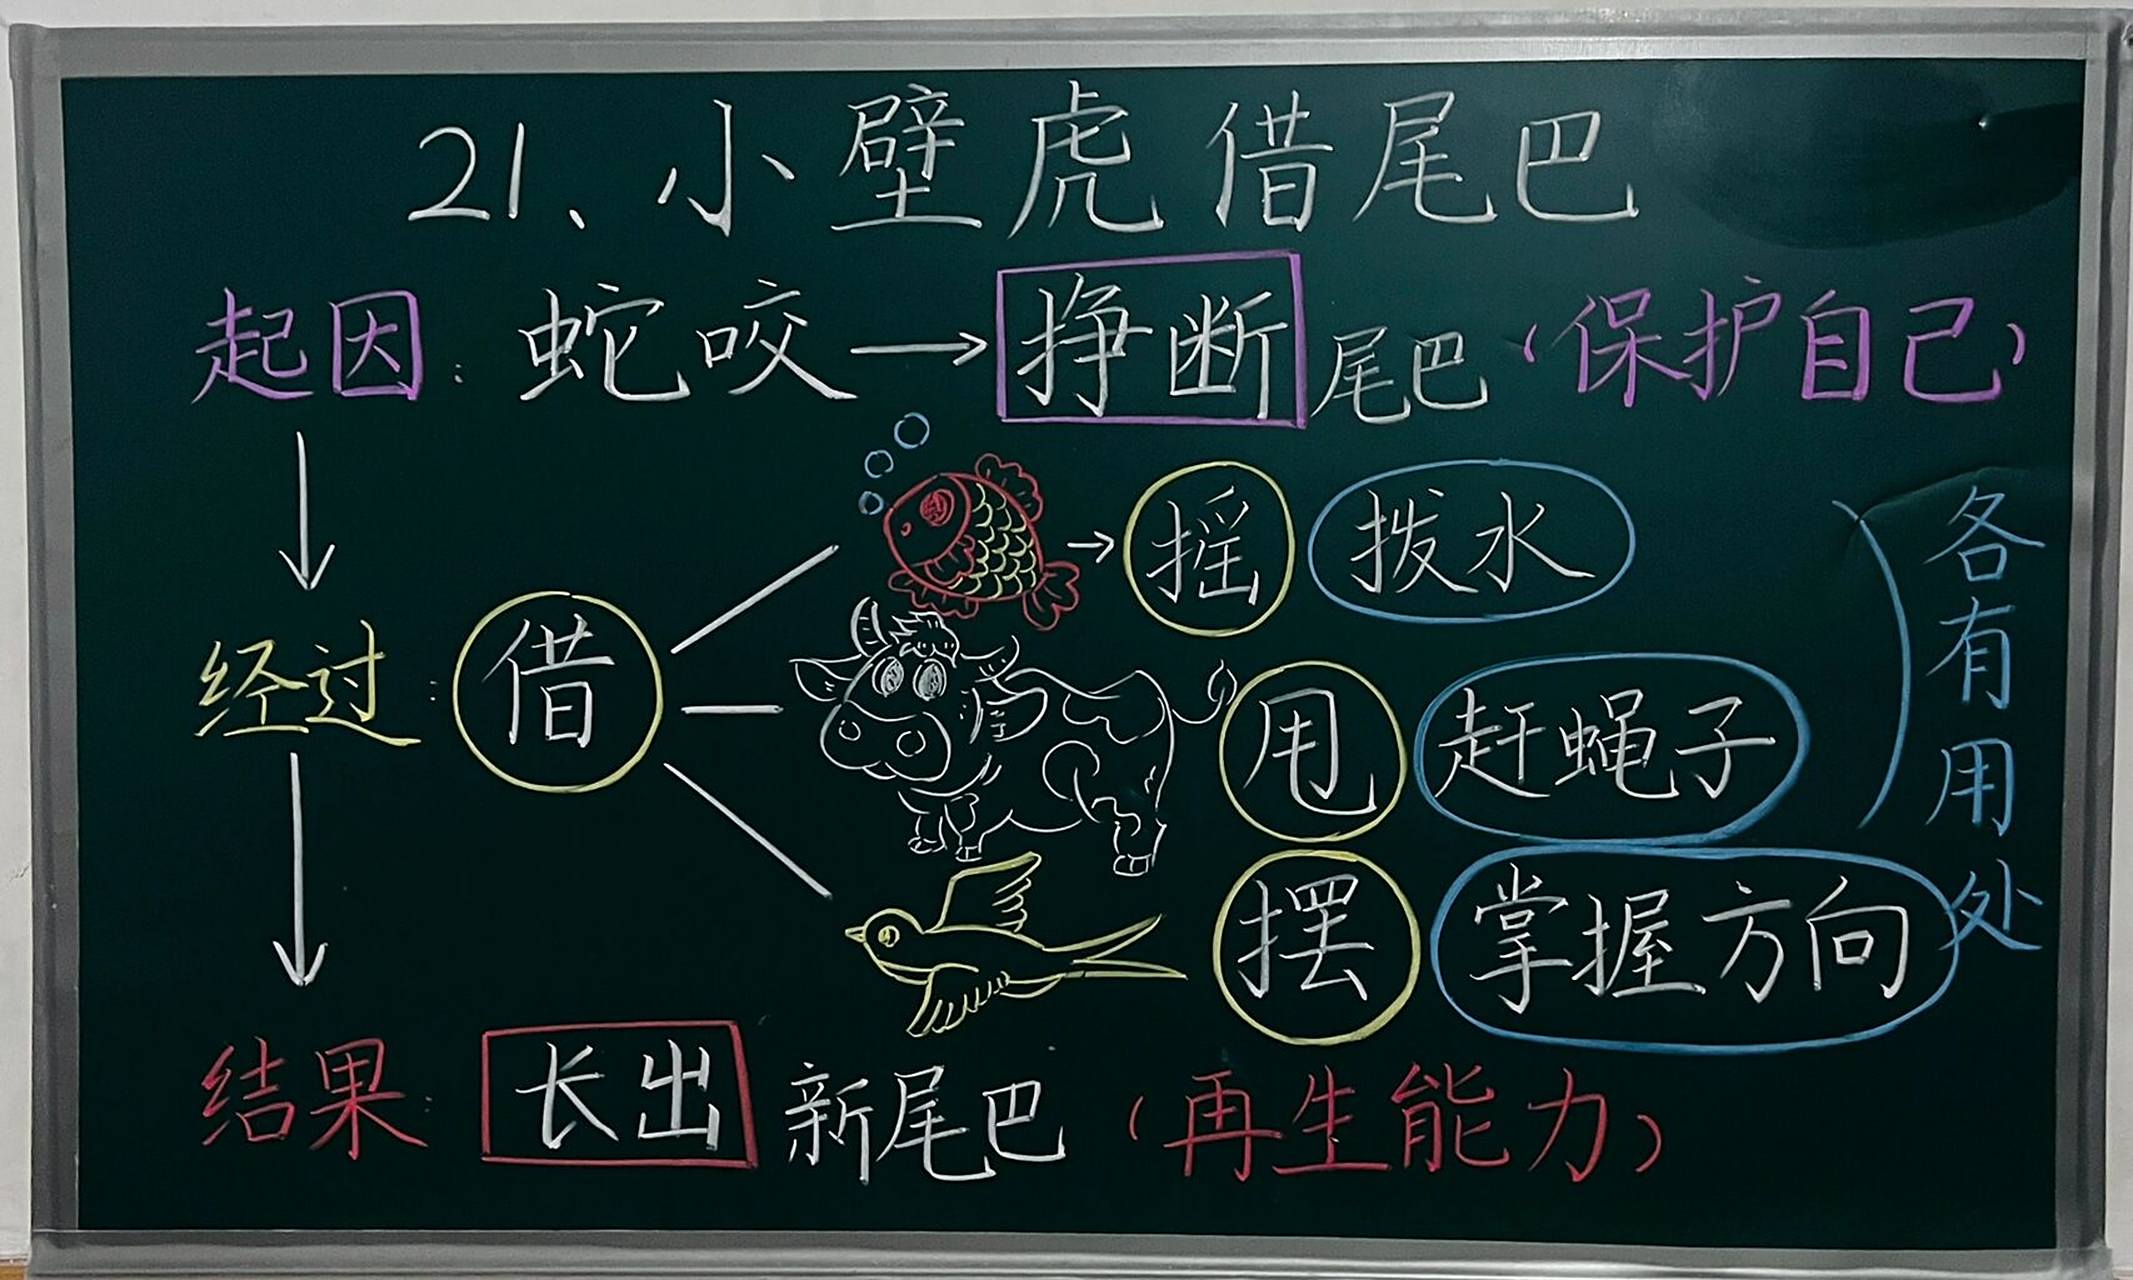 21、小壁虎借尾巴
起因：蛇咬→挣断尾巴（保护自己）
→摇 拨水
经过：借
甩 赶蝇子
摆 掌握方向
各有用处
结果：长出新尾巴（再生能力）